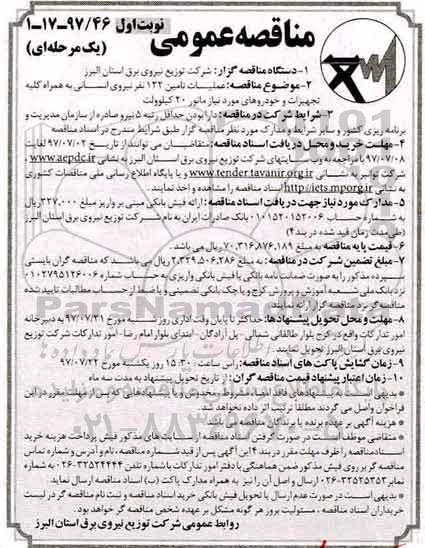 مناقصه عمومی
نوبت اول ۹۷/۴۶-۱۷-۱
(یک مرحله‌ای)
۱-دستگاه مناقصه گزار: شرکت توزیع نیروی برق استان البرز
۲-موضوع مناقصه: عملیات تامین ۱۲۲ نفر نیروی انسانی به همراه کلیه
تجهیزات و خودروهای مورد نیاز مانور ۲۰ کیلوولت
۳- شرایط شرکت در مناقصه: دارا بودن حداقل رتبه ۵ نیرو صادره از سازمان مدیریت و
برنامه ریزی کشور و سایر شرایط و مدارک مورد نظر مناقصه گزار طبق شرایط مندرج در اسناد مناقصه
۴-مهلت خرید و محل دریافت اسناد مناقصه: متقاضیان می توانند از تاریخ ۹۷/۰۷/۰۲ لغایت
۹۷/۰۷/۰۸ با مراجعه به وب سایتهای شرکت توزیع نیروی برق استان البرز به نشانی www.aepdc.ir،
شرکت توانیر به نشانی www.tender.tavanir.org.ir و یا پایگاه اطلاع رسانی ملی مناقصات کشوری
به نشانی http://iets.mporg.ir اسناد مناقصه را مشاهده و اخذ نمایند.
۵-مدارک مورد نیاز جهت دریافت اسناد مناقصه: ارائه فیش بانکی مبنی بر واریز مبلغ ۳۲۷،۰۰۰ ریال
به شماره حساب ۰۱۰۱۵۲۰۱۵۲۰۰۶ بانک صادرات ایران به نام شرکت توزیع نیروی برق استان البرز
(طی مدت زمان قید شده در بند۴)
۶-قیمت پایه مناقصه به مبلغ ۷۰،۳۱۶،۸۷۶،۱۸۹ ریال می باشد.
۷-مبلغ تضمین شرکت در مناقصه: به مبلغ ۲،۳۲۹،۵۰۶،۲۸۶ ریال می باشد که مناقصه گران بایستی
سپرده مذکور را به صورت ضمانت نامه بانکی یا فیش بانکی واریزی به حساب شماره ۰۱۰۲۷۹۵۱۲۶۰۰۶
نزد بانک ملی شعبه آموزش و پرورش کرج و یا چک بانکی تضمینی و یا ضبط از حساب مطالبات تایید شده
مناقصه گر نزد مناقصه گزار ارائه نمایند.
۸-مهلت و محل تحویل پیشنهادها: حداکثر تا پایان وقت اداری روز شنبه مورخ ۹۷/۰۷/۲۱ به دبیرخانه
امور تدارکات واقع در کرج بلوار طالقانی شمالی- پل آزادگان- ابتدای بلوار امام رضا- امور تدارکات شرکت توزیع
نیروی برق استان البرز تحویل نمایند.
۹-زمان گشایش پاکت های اسناد مناقصه: راس ساعت ۱۵:۳۰ روز یکشنبه مورخ ۹۷/۰۷/۲۲
۱۰-زمان اعتبار پیشنهاد قیمت مناقصه گران: از تاریخ تحویل پیشنهاد به مدت سه ماه
* بدیهی است به پیشنهادهای فاقد امضاء، مشروط و مخدوش و یا پیشنهادهایی که پس از مهلت مقرر در این
فراخوان واصل می گردند مطلقا ترتیب اثر داده نخواهد شد.
* هزینه آگهی بر عهده برنده یا برندگان مناقصه می باشد.
* متقاضی موظف است در صورت گرفتن اسناد مناقصه از سایت های مذکور فیش پرداخت هزینه خرید
اسناد مناقصه را ظرف مهلت مقرر در بند ۴ این آگهی پس از قید شماره مناقصه، نام و آدرس و شماره تماس
مناقصه گر بر روی فیش مذکور ضمن هماهنگی با دفتر امور تدارکات با شماره تلفن ۳۲۵۲۲۴۴۴-۰۲۶ به شماره
نمابر ۳۲۵۲۵۳۵۳-۰۲۶ ارسال و اصل آن را نیز به همراه مدارک پاکت (ب) اسناد مناقصه ارسال نماید.
* بدیهی است در صورت عدم ارسال یا تحویل فیش بانکی خرید اسناد مناقصه و ثبت نام مناقصه گر در لیست
خریداران اسناد مناقصه، مسئولیت بروز هر گونه مشکل بر عهده شخص مناقصه گر خواهد بود.
روابط عمومی شرکت توزیع نیروی برق استان البرز